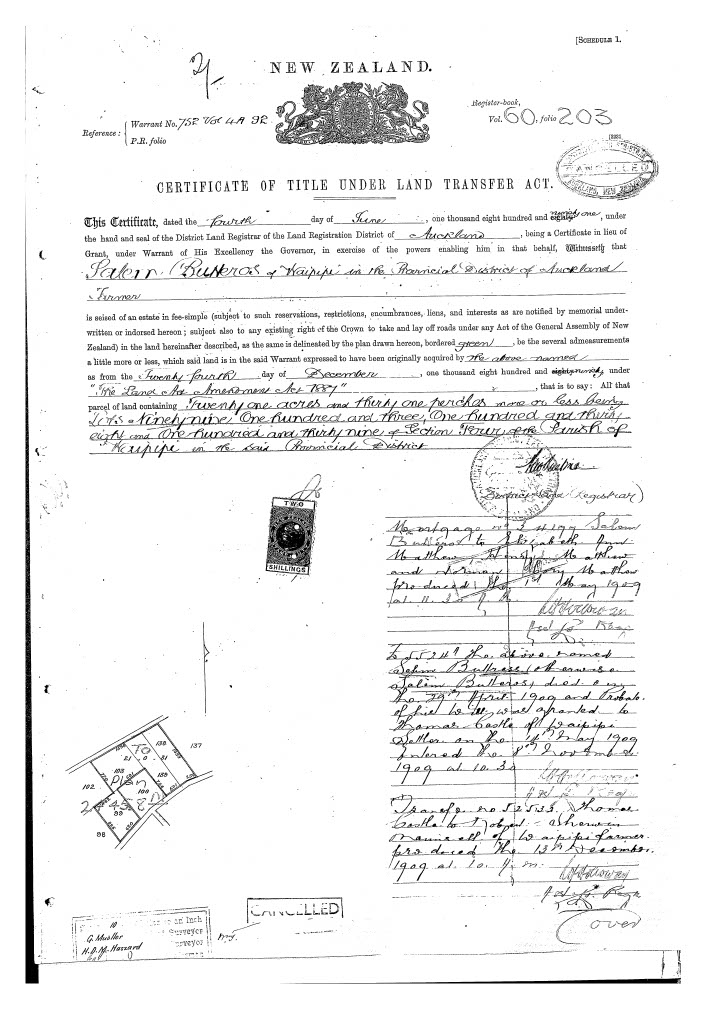 [SCHEDULE 1.
2/
NEW ZEALAND.
Register-book,
Reference: { Warrant No. 752 Vol 4A 92
Vol. 60, folio 203
P.R. folio
CANCELLED
CERTIFICATE OF TITLE UNDER LAND TRANSFER ACT.
This Certificate, dated the fourth day of June, one thousand eight hundred and eighty ninety one, under
the hand and seal of the District Land Registrar of the Land Registration District of Auckland, being a Certificate in lieu of
Grant, under Warrant of His Excellency the Governor, in exercise of the powers enabling him in that behalf, Witnesseth that
Salem Butteros of Waipipi in the Provincial District of Auckland
Farmer
is seized of an estate in fee-simple (subject to such reservations, restrictions, encumbrances, liens, and interests as are notified by memorial under-
written or indorsed hereon; subject also to any existing right of the Crown to take and lay off roads under any Act of the General Assembly of New
Zealand) in the land hereinafter described, as the same is delineated by the plan drawn hereon, bordered green, be the several admeasurements
a little more or less, which said land is in the said Warrant expressed to have been originally acquired by the above named
as from the Twenty fourth day of December, one thousand eight hundred and eighty ninety under
"The Land Act Amendment Act 1887", that is to say: All that
parcel of land containing Twenty one acres and thirty one perches more or less being
Lots Ninety nine, One hundred and three, One hundred and thirty
eight and One hundred and thirty nine of Section Four of the Parish of
Waipipi in the said Provincial District
District Land Registrar
TWO
SHILLINGS
Mortgage no 34199 Salem
Butteros to Elizabeth Ann
Matthew, Matthew
and Norman Matthew
produced the 1st May 1909
at 11.30
55247 the above named
Salem Buttress (otherwise
Salem Butteros) died on
the 29th April 1909 and Probate
of his Will was granted to
Thomas Castle of Waipipi
Settler on the May 1909
entered the November
1909 at 10.30
Transfer no 52533 Thomas
Castle to Robert
Maunsell of Waipipi farmer
produced the 13th December
1909 at 10.
Over
138
137
21. 0. 31
102
103
139
Plan
100
99
98
CANCELLED
10
to an Inch
G. Mueller
Surveyor
H. D. M. Haszard